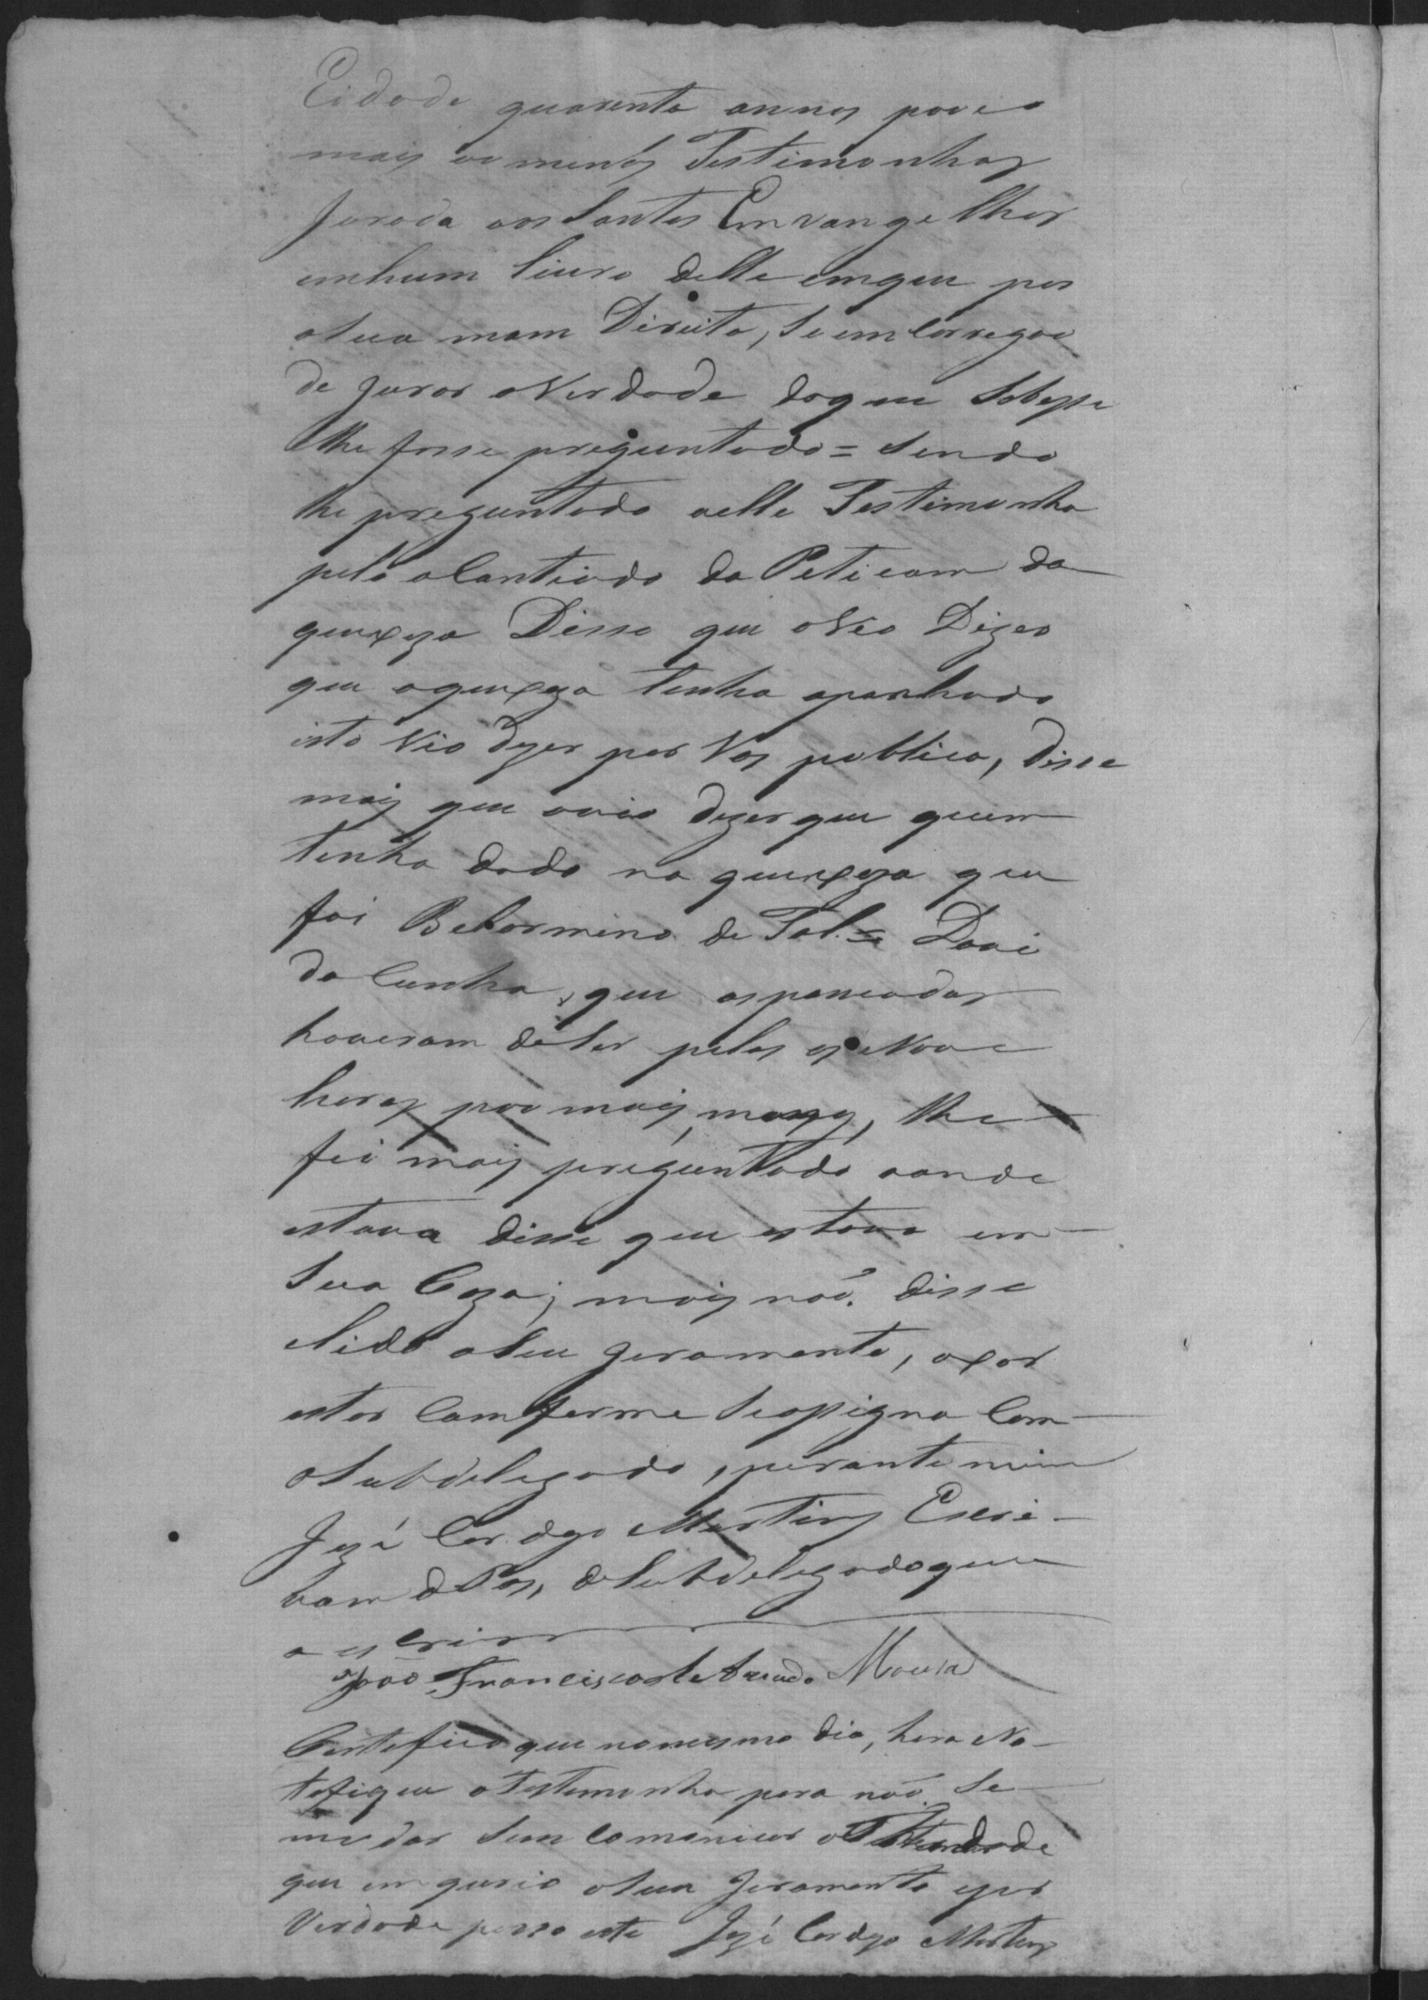 Eidade quarenta annos pouco
mais ou menos Testimonhas
Jurada aos Santos Emvangelhos
emhum Livro delle emque pos
a Sua mam Direita, Se em Carregou
de Jurar a Verdade doque Sobesse
lhe fosse preguntado = Sendo
lhe preguntado aelle Testimonha
pelo a Contiudo da Peticam da
queixoza Disse que oVio Dizer
que aqueixoza tinha apanhado
isto Vio dizer por Vos publica, Disse
mais que ovio dizer que quem
tinha dado na queixoza que
foi Belarmino de Tal =
da Cunha, que aspancadas
houveram de Ser pelas as Nove
horas pou mais, lhe
foi mais preguntado aonde
estava disse que estava em
Sua Caza; mais não. disse
elido o Seu Juramento, o por
estar Comforme Se asigna Com
o Subdelegado, perante mim
Jozé Martins Escri-
vam de Pas, de Subdelegado que
o escrivi
João Francisco de Azevedo Moura
Certefico que no mesmo dia, hora No-
tefiquei o Testemonha para não Se
mudar Sem Comonicar
que em o Seu Juramento epor
Verdade passo este Jozé Martins